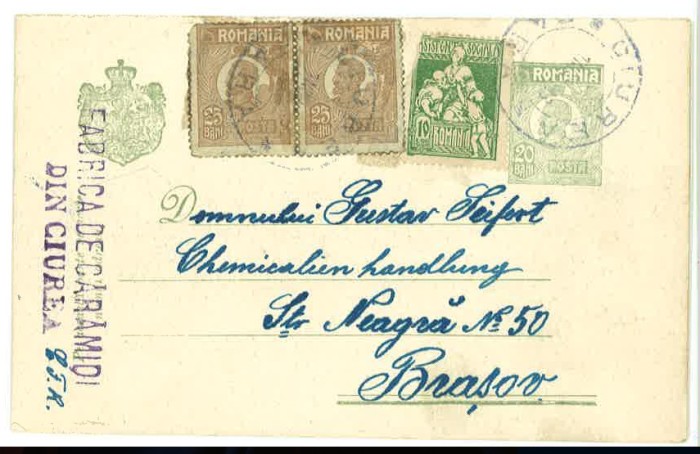 ROMANIA
25 BANI
POSTA
ROMANIA
25 BANI
POSTA
ASISTENȚA SOCIALA
10
ROMANIA
ROMANIA
20 BANI
POSTA
CIUREA
Domnului Gustav Seifert
Chemicalien handlung
Str Neagră № 50
Brașov
FABRICA DE CĂRĂMIDI
DIN CIUREA